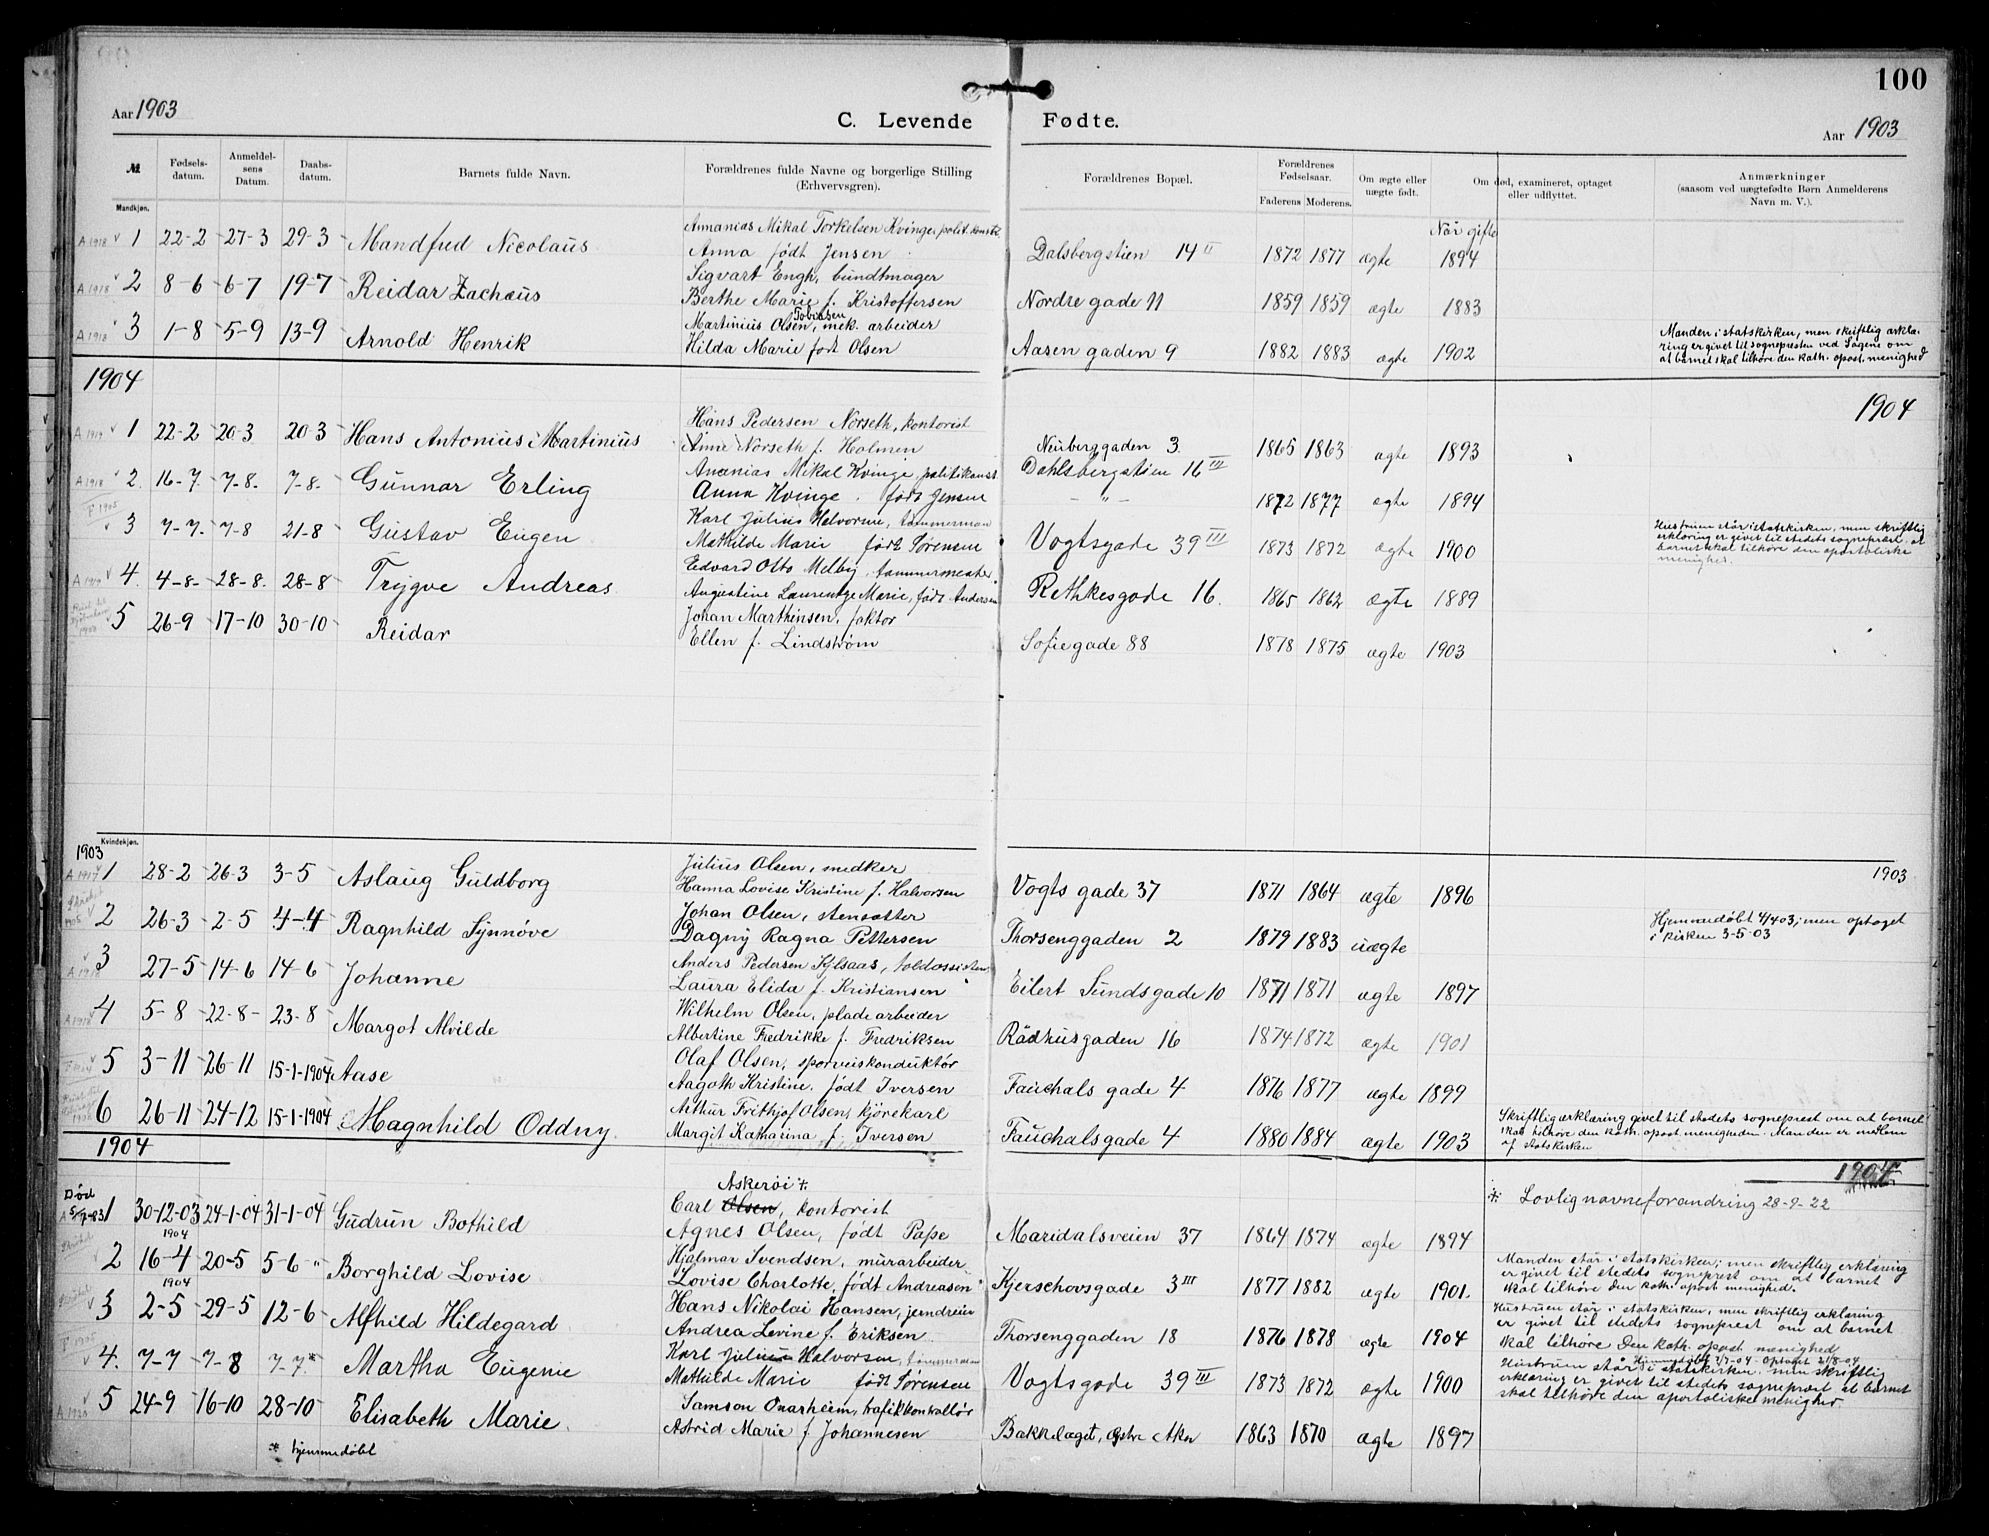 100
Aar 1903
C. Levende Fødte.
Aar 1903
№ Fødsels-datum. Anmeldel-sens Datum. Daabs-datum. Barnets fulde Navn. Forældrenes fulde Navne og borgerlige Stilling (Erhvervsgren). Forældrenes Bopæl. Forældrenes Fødselsaar. Faderens Moderens. Om ægte eller uægte født. Om død, examineret, optaget eller udflyttet. Anmærkninger (saasom ved uægtefødte Børn Anmelderens Navn m. V.).
Mandkjøn.
Når gifte
Annanias Mikal Torkelsen Kvinge, polit. konstb.
A 1918 1 22-2 27-3 29-3 Mandfred Nicolaus Anna født Jensen Dalsbergstien 14 II 1872 1877 ægte 1894
Sigvart Engh, bundtmager
A 1918 2 8-6 6-7 19-7 Reidar Zachæus Berthe Marie f. Kristoffersen Nordre gade 11 1859 1859 ægte 1883
Tobiasen
Martinius Olsen, mek. arbeider
A 1918 3 1-8 5-9 13-9 Arnold Henrik Hilda Marie født Olsen Aasen gaden 9 1882 1883 ægte 1902
Manden i statskirken, men skriftlig erklæ-
ring er givet til sognepresten ved Sagene om
at barnet skal tilhøre den kath. apost. menighed
1904
1904
Hans Pedersen Norseth, kontorist
A 1919 1 22-2 20-3 20-3 Hans Antonius Martinius Anne Norseth f. Holmen Neuberggaden 3 1865 1863 ægte 1893
Ananias Mikal Kvinge, politikonst. Dahlsbergstien 16 III
A 1918 2. 16-7. 7-8. 7-8. Gunnar Erling Anna Kvinge. født Jensen - " - 1872 1877 ægte 1894
F 1905
Karl Julius Halvorsen, tømmermann
3 7-7. 7-8 21-8 Gustav Eugen Mathilde Marie født Sørensen Vogtsgade 39 III 1873 1872 ægte 1900
Hustruen står i statskirken, men skriftlig
erklæring er givet til stedets sogneprest at
barnet skal tilhøre den apostoliske
menighed.
Edvard Otto Melby, tømmermester.
A 1919 4. 4-8. 28-8. 28-8 Trygve Andreas Augustine Laurentze Marie, født Andersen Rethkesgade 16. 1865 1862 ægte 1889
Johan Marthinsen, faktor
5 26-9 17-10 30-10 Reidar Ellen f. Lindstrøm Sofiegade 88 1878 1875 ægte 1903
Kvindekjøn.
1903
1903
Julius Olsen, snedker
A 1917 1 28-2 26-3 3-5 Aslaug Guldborg Hanna Lovise Kristine f. Halvorsen Vogts gade 37 1871 1864 ægte 1896
Johan Olsen, stensætter
2 26-3 2-5 4-4 Ragnhild Synnøve Dagny Ragna Pettersen Thorsenggaden 2 1879 1883 uægte
Hjemmedøbt 4/4 03, men optaget
i kirken 3-5-03
Anders Pedersen Kjlsaas, toldassistent
A 1918 3 27-5 14-6 14-6 Johanne Laura Elida f. Kristiansen Eilert Sundsgade 10 1871 1871 ægte 1897
Wilhelm Olsen, pladearbeider
A 1918 4 5-8 22-8 23-8 Margot Alvilde Albertine Fredrikke f. Fredriksen Rådhusgaden 16 1874 1872 ægte 1901
Olaf Olsen, sporveiskonduktør
5 3-11 26-11 15-1-1904 Aase Aagoth Kristine. født Iversen Fauchals gade 4 1876 1877 ægte 1899
Arthur Frithjof Olsen, kjørekarl
6 26-11 24-12 15-1-1904 Magnhild Oddny. Margit Katharina f. Iversen Fauchalsgade 4 1880 1884 ægte 1903
Skriftlig erklæring givet til stedets sogneprest om at barnet
skal tilhøre den kath. apost. menigheden. Manden er medlem
af statskirken
1904
1904
Askerøi *
Død
Carl Olsen, kontorist
1 30-12-03 24-1-04 31-1-04 Gudrun Bothild Agnes Olsen, født Pape Maridalsveien 37 1864 1874 ægte 1894
* Lovlig navneforandring 28-9-22
1904
Hjalmar Svendsen, murarbeider
2 16-4 20-5 5-6 " Borghild Lovise Lovise Charlotte, født Andreasen Kjerschovsgade 3 III 1877 1882 ægte 1901.
Manden står i statskirken; men skriftlig erklæring
er givet til stedets sogneprest om at barnet
skal tilhøre den kath. apost menighed.
1904
Hans Nikolai Hansen, jerndreier
3 2-5 29-5 12-6 Alfhild Hildegard Andrea Levine f. Eriksen Thorsenggaden 18 1876 1878 ægte 1904
Hustruen står i statskirken, men skriftlig erklæring
er givet til stedets sogneprest om at barnet
skal tilhøre Den kath. apost menighed
F 1905
Karl Julius Halvorsen, tømmermann
4. 7-7 7-8 7-7* Martha Eugenie Mathilde Marie født Sørensen Vogtsgade 39 III 1873 1872 ægte 1900
Hjemmedøbt 7/7-04 - Optaget 21/8-04
Hustruen står i statskirken. men skriftlig
erklæring er givet til stedets sogneprest at barnet
skal tilhøre den apostoliske menighed.
Samson Onarheim, trafikkontrollør
5 24-9 16-10 28-10 Elisabeth Marie. Astrid Marie f. Johannesen Bækkelaget, østre Aker 1863 1870 ægte 1897
* hjemmedøbt